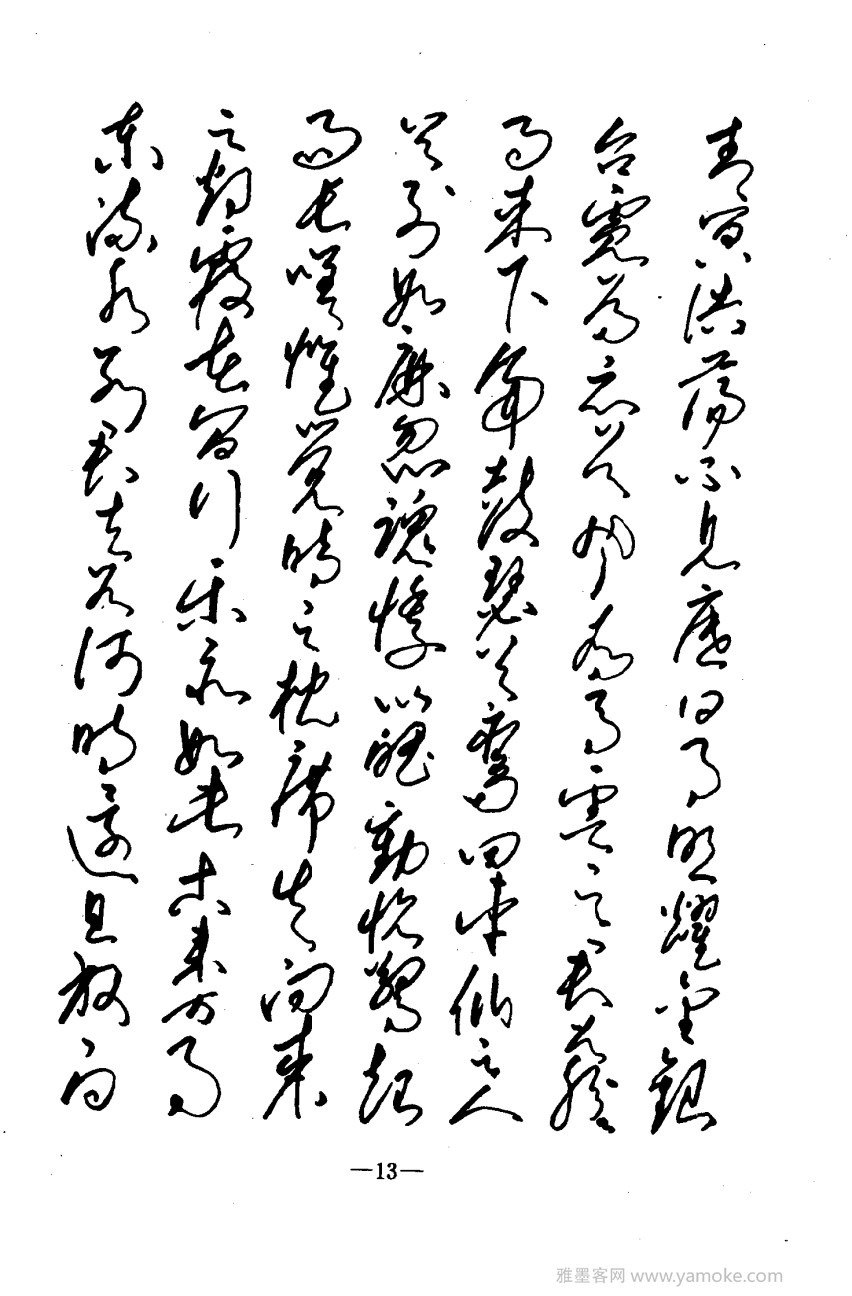 青冥浩荡不见底日月照耀金银
台霓为衣兮风为马云之君兮纷纷
而来下虎鼓瑟兮鸾回车仙之人
兮列如麻忽魂悸以魄动恍惊起
而长嗟惟觉时之枕席失向来
之烟霞世间行乐亦如此古来万事
东流水别君去兮何时还且放白
—13—
雅墨客网 www.yamoke.com